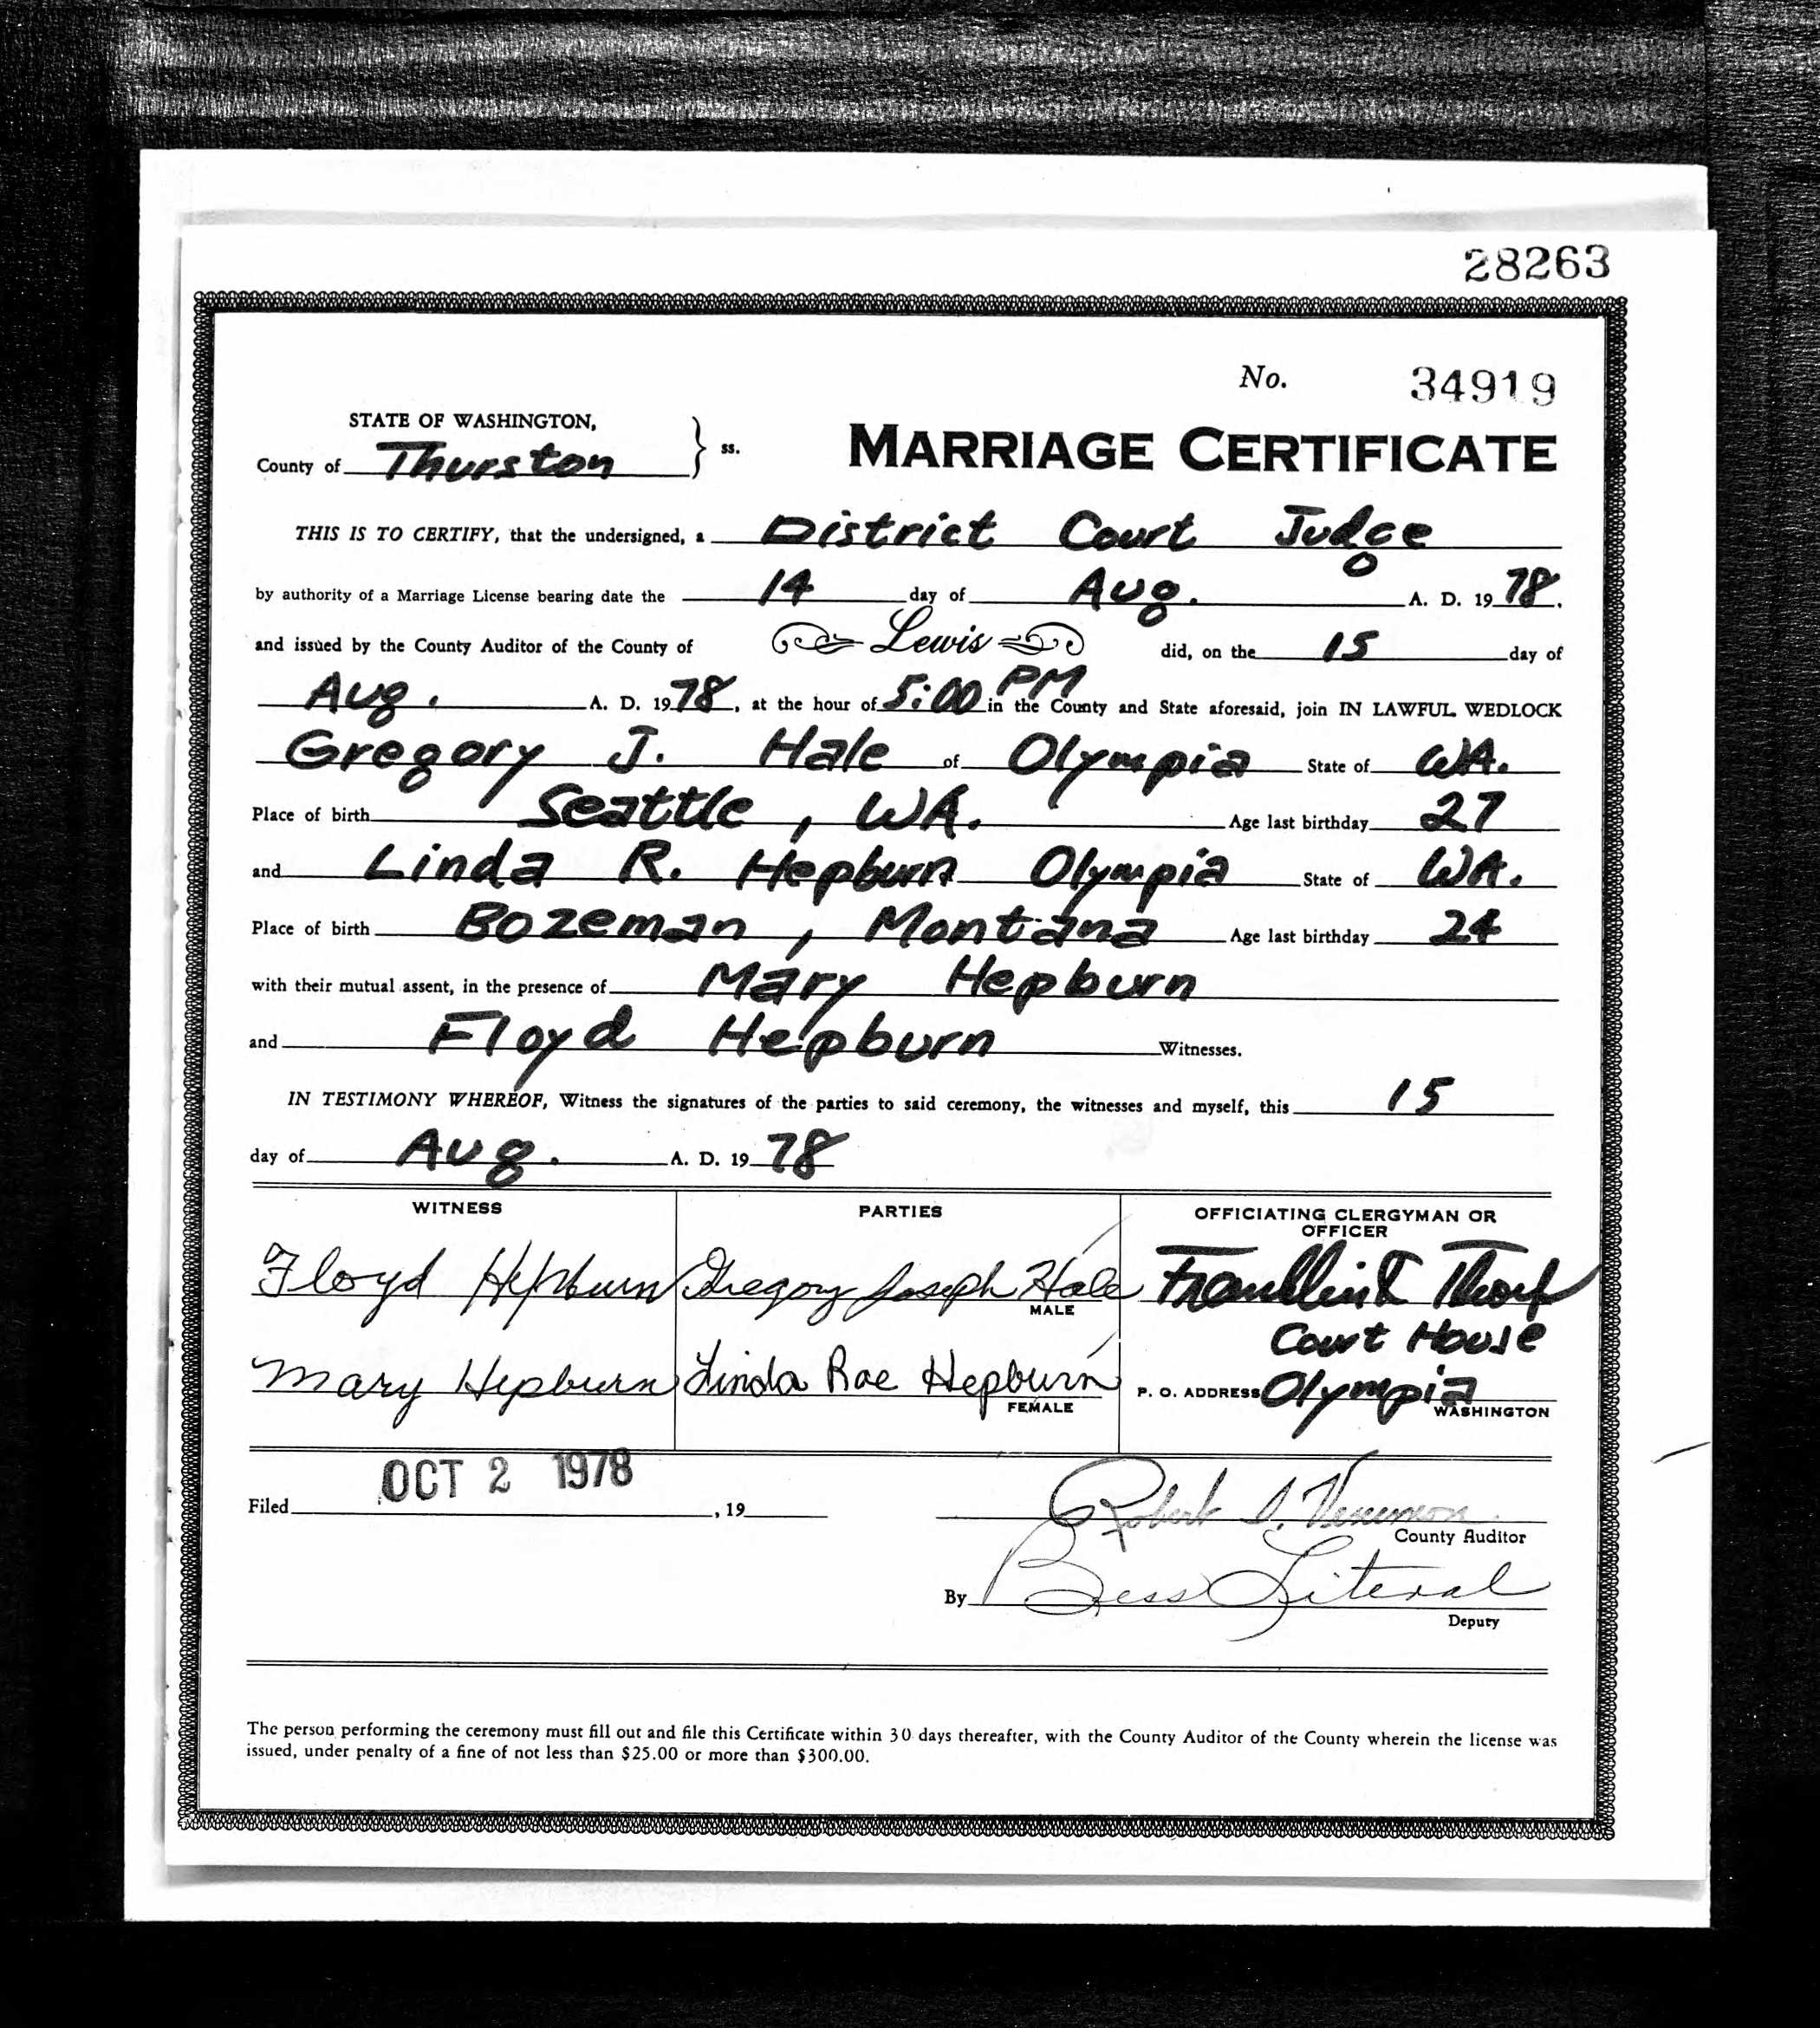 28263
No. 34919
STATE OF WASHINGTON,
County of Thurston } ss.
MARRIAGE CERTIFICATE
THIS IS TO CERTIFY, that the undersigned, a District Court Judge
by authority of a Marriage License bearing date the 14 day of Aug. A. D. 1978.
and issued by the County Auditor of the County of Lewis did, on the 15 day of
Aug. A. D. 1978, at the hour of 5:00 PM in the County and State aforesaid, join IN LAWFUL WEDLOCK
Gregory J. Hale of Olympia State of WA.
Place of birth Seattle, WA. Age last birthday 27
and Linda R. Hepburn Olympia State of WA.
Place of birth Bozeman, Montana Age last birthday 24
with their mutual assent, in the presence of Mary Hepburn
and Floyd Hepburn Witnesses.
IN TESTIMONY WHEREOF, Witness the signatures of the parties to said ceremony, the witnesses and myself, this 15
day of Aug. A. D. 1978
WITNESS
Floyd Hepburn
Mary Hepburn
PARTIES
Gregory Joseph Hale
MALE
Linda Rae Hepburn
FEMALE
OFFICIATING CLERGYMAN OR
OFFICER
Thorp
Court House
P. O. ADDRESS Olympia
WASHINGTON
Filed OCT 2 1978, 19
Robert
County Auditor
By Bess Literal
Deputy
The person performing the ceremony must fill out and file this Certificate within 30 days thereafter, with the County Auditor of the County wherein the license was
issued, under penalty of a fine of not less than $25.00 or more than $300.00.